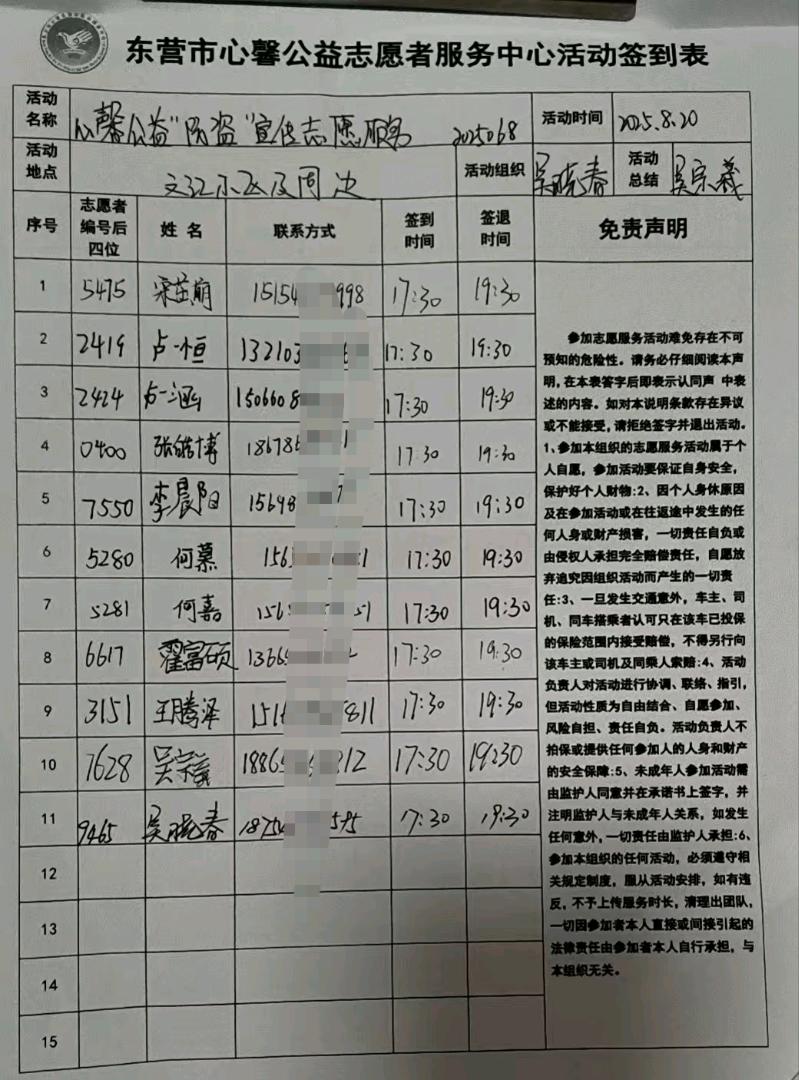 东营市心馨公益志愿者服务中心活动签到表
活动名称 心馨公益"防盗"宣传志愿服务 2025068 活动时间 2025.8.20
活动地点 文汇小区及周边 活动组织 吴晓春 活动总结 吴宗羲
序号 志愿者编号后四位 姓名 联系方式 签到时间 签退时间 免责声明
1 5475 15154 998 17:30 19:30
2 2419 卢一恒 132103 17:30 19:30
3 2424 卢一涵 1506608 17:30 19:30
4 0400 张皓博 18678 1 17:30 19:30
5 7550 李晨阳 15698 17:30 19:30
6 5280 何慕 156 1 17:30 19:30
7 5281 何嘉 156 51 17:30 19:30
8 6617 翟富硕 1366 17:30 19:30
9 3151 王腾泽 1516 5811 17:30 19:30
10 7628 吴宗羲 1886 812 17:30 19:30
11 9465 吴晓春 1875 595 17:30 19:30
12
13
14
15
参加志愿服务活动难免存在不可
预知的危险性。请务必仔细阅读本声
明,在本表签字后即表示认同声 中表
述的内容。如对本说明条款存在异议
或不能接受,请拒绝签字并退出活动。
1、参加本组织的志愿服务活动属于个
人自愿,参加活动要保证自身安全,
保护好个人财物:2、因个人身休原因
及在参加活动或在往返途中发生的任
何人身或财产损害,一切责任自负或
由侵权人承担完全赔偿责任,自愿放
弃追究因组织活动而产生的一切责
任:3、一旦发生交通意外,车主、司
机、同车搭乘者认可只在该车已投保
的保险范围内接受赔偿,不得另行向
该车主或司机及同乘人索赔:4、活动
负责人对活动进行协调、联络、指引,
但活动性质为自由结合、自愿参加、
风险自担、责任自负。活动负责人不
拍保或提供任何参加人的人身和财产
的安全保障:5、未成年人参加活动需
由监护人同意并在承诺书上签字,并
注明监护人与未成年人关系,如发生
任何意外,一切责任由监护人承担:6、
参加本组织的任何活动,必须遵守相
关规定制度,服从活动安排,如有违
反,不予上传服务时长,清理出团队,
一切因参加者本人直接或间接引起的
法律责任由参加者本人自行承担,与
本组织无关。